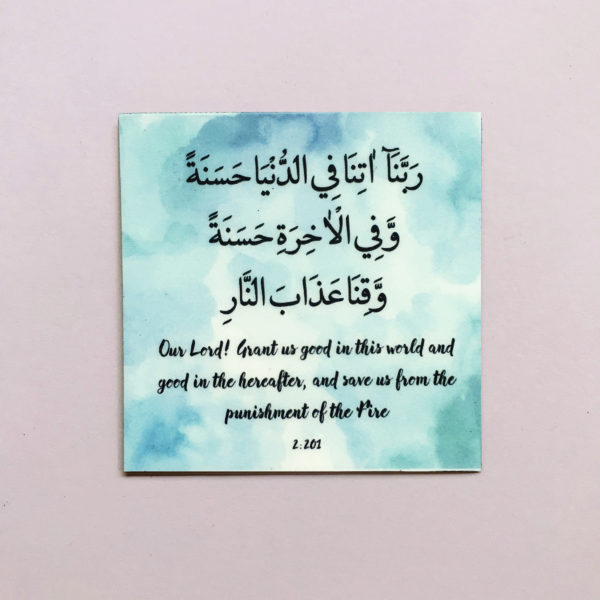 رَبَّنَآ اٰتِنَا فِي الدُّنْيَا حَسَنَةً
وَّفِي الْاٰخِرَةِ حَسَنَةً
وَّقِنَا عَذَابَ النَّارِ
Our Lord! Grant us good in this world and
good in the hereafter, and save us from the
punishment of the Fire
2:201